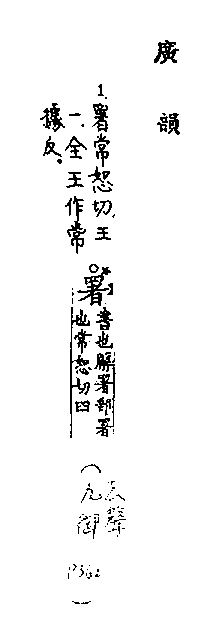 廣韻
1. 署常恕切,王
一、全王作常
據反。
署
書也解署部署
也常恕切四
(去聲
九御
P362
)